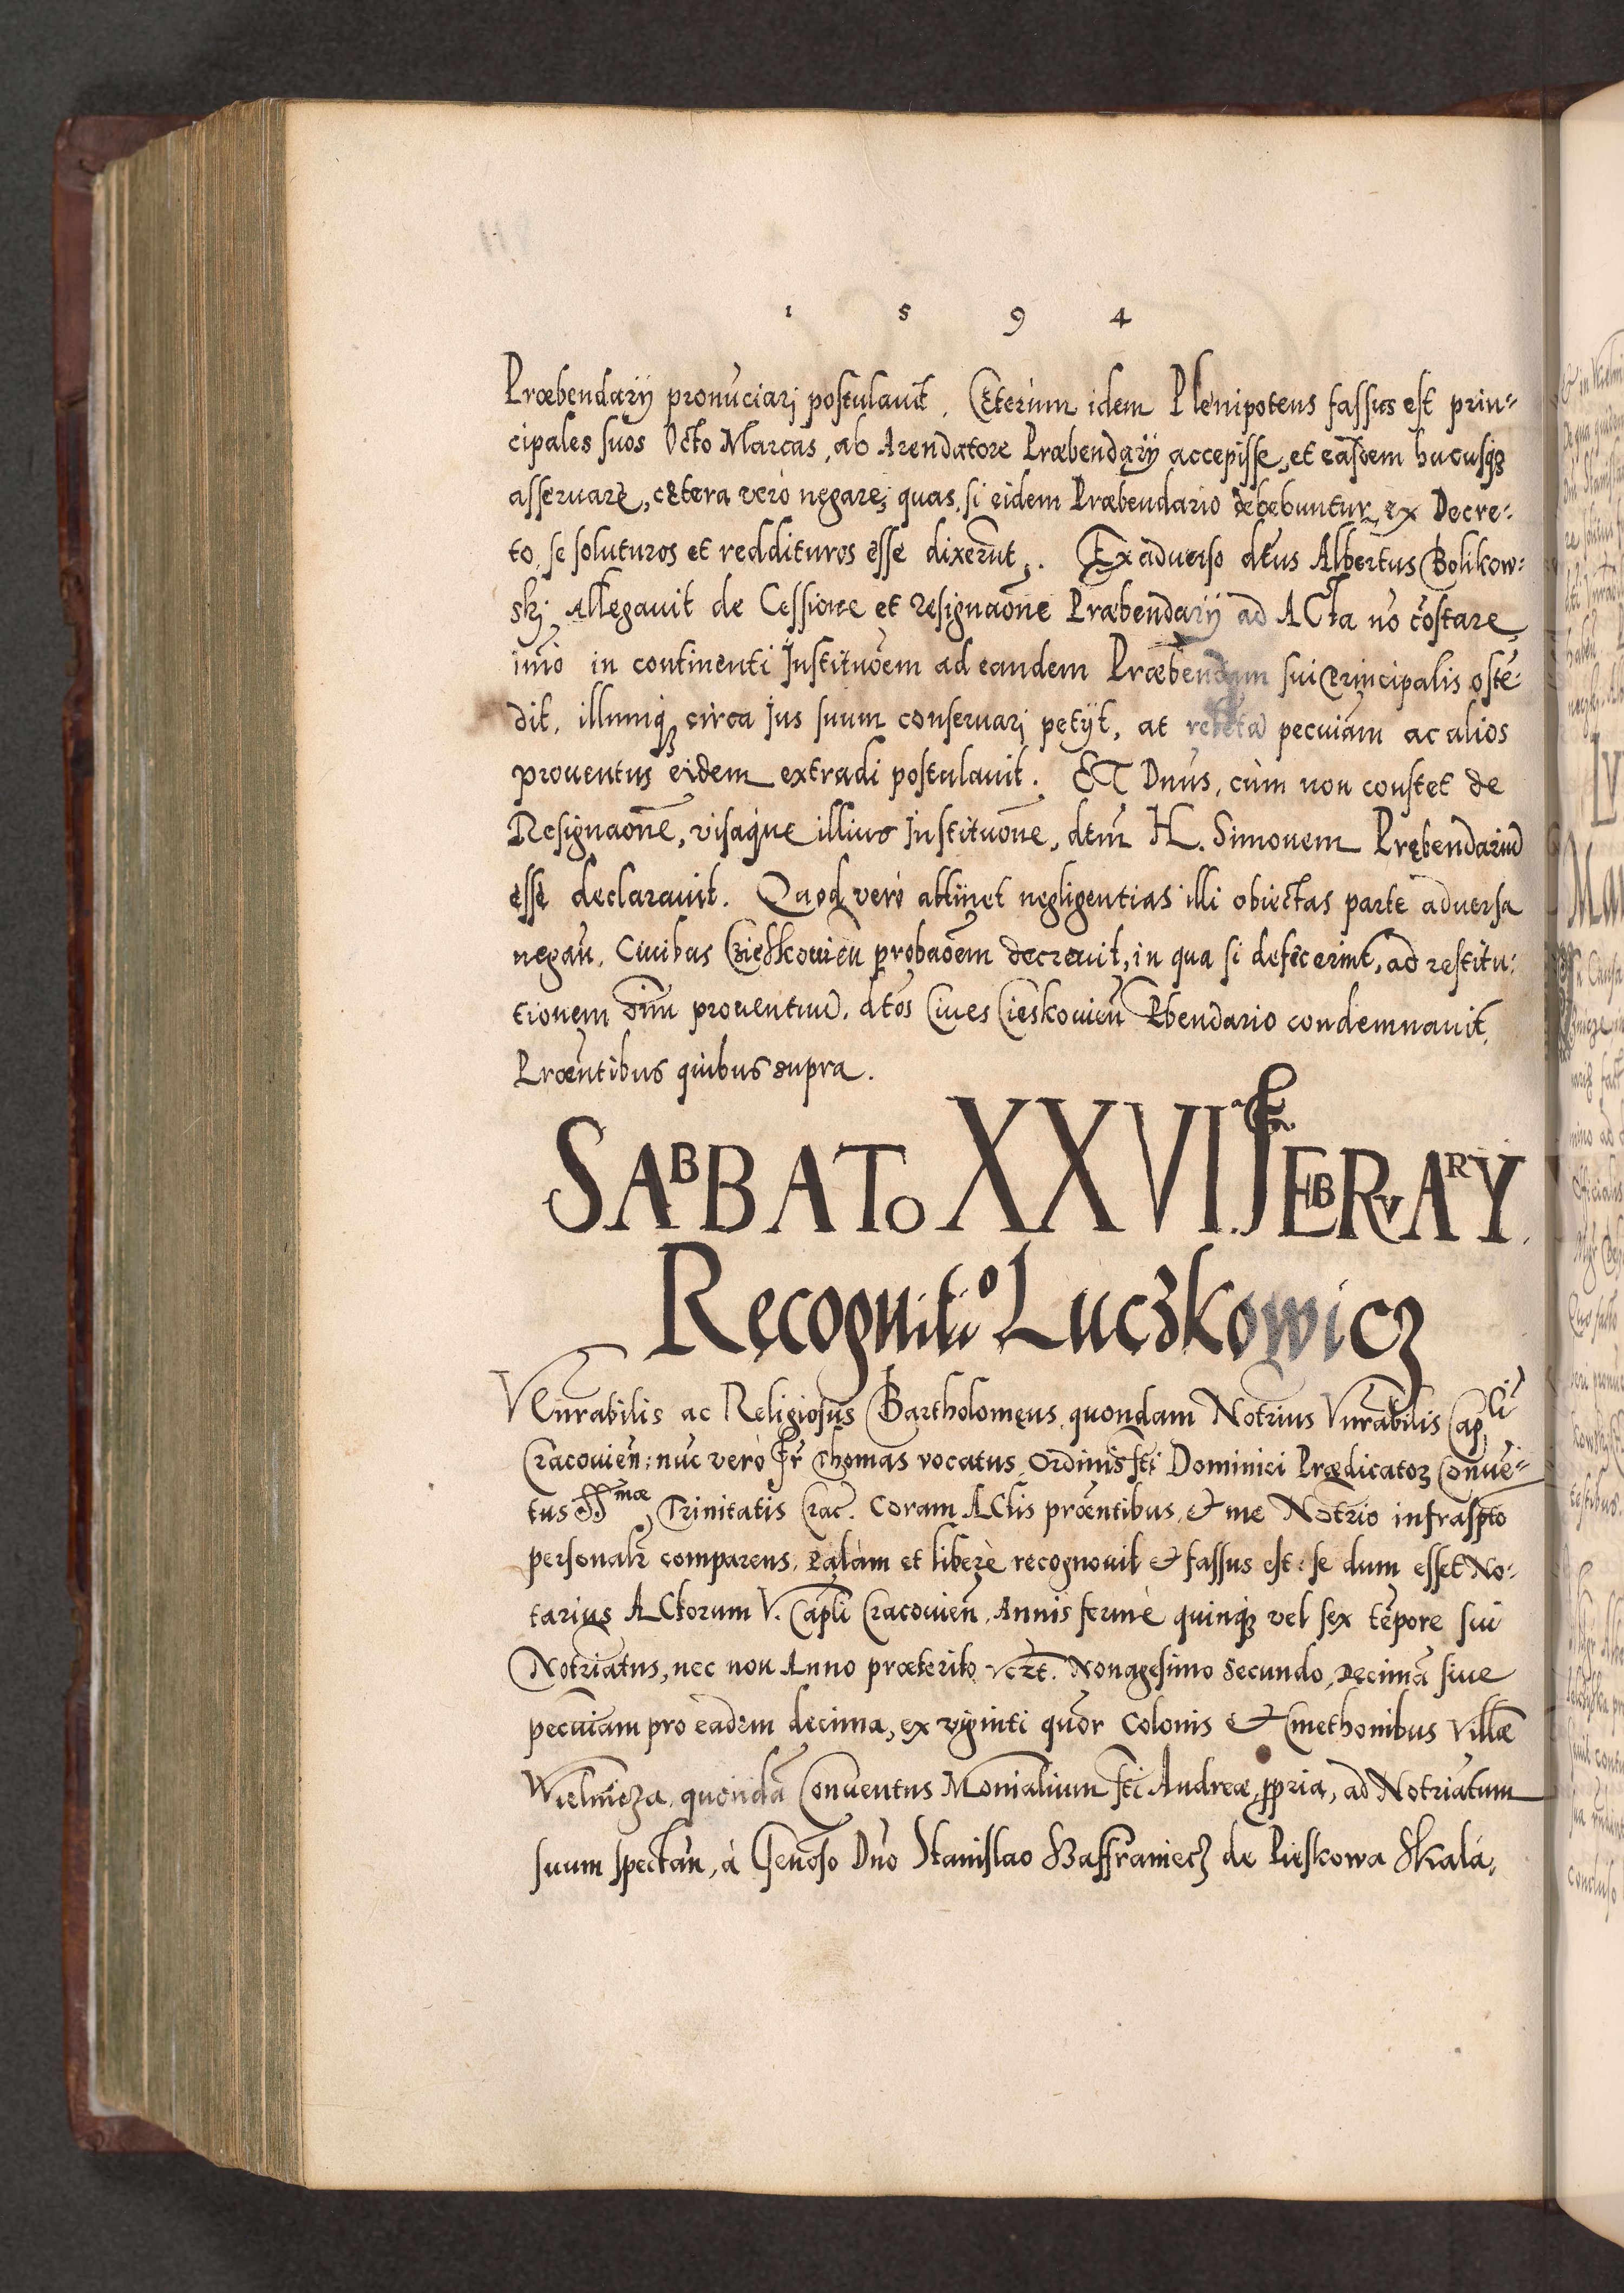 1 5 9 4
Præbendarÿ pronũciarj postulauit. CEterùm idem Plenipotens fassus est prin=
cipales suos Octo Marcas, ab Arendatore Præbendarÿ accepisse, et easdem hucusq;
asseruare, cEtera verò negare; quas, si eidem Præbendario debebuntur, ex Decre=
to, se soluturos et reddituros esse dixerũt. Ex aduerso dtus Albertus Bolikow=
skj Allegauit de Cessione et resignaõne Præbendarÿ ad ACTa nõ cõstare,
imò in continenti Instituõem ad eandem Præbendam sui Principalis ostẽ=
dit, illumq; circa Jus suum conseruarj petÿt, at pecuiam ac alios
prouentus eidem extradi postulauit. ET Dnus, cùm non constet de
Resignaõne, visaque illius Instituõne, dtm̃ H. Simonem Prębendariũ
esse declarauit. Quod verò attinet negligentias illi obiectas parte aduersa
negañ, Ciuibus Czieskowieñ probaõem decreuit, in qua si defecerint, ad restitu=
tionem õiũ prouentuũ, dtos Ciues Cieskowieñ Pbendario condemnauit.
Præñtibus quibus supra.
SABBATO XXVI FEBRVARY.
Recognitio Luczkowicz
VEnrabilis ac Religiosus Bartholomęus quondam Notrius Vnrabilis Capli
Cracouieñ: nũc verò Fr̃ Thomas vocatus Ordinis Sti Dominici Prædicatoꝝ Conuẽ=
tus SSmæ Trinitatis Crac. Coram ACtis præñtibus, & me Notrio infraspto
personalr̃ comparens, palàm et liberè recognouit & fassus est: se dum esset No=
tarius ACtorum V. Capli Cracouieñ, Annis fermè quinq; vel sex tẽpore sui
Notriatus, nec non Anno præterito vezt. Nonagesimo secundo, Decimã siue
pecuiam pro eadem decima, ex viginti quõr Colonis & Cmethonibus Villæ
Wielmicza, quondã Conuentus Monialium Sti Andreæ, ppria, ad Notriatum
suum spectañ, à Genoso Dno Stanislao Szaffraniecz de Pieskowa Skala,